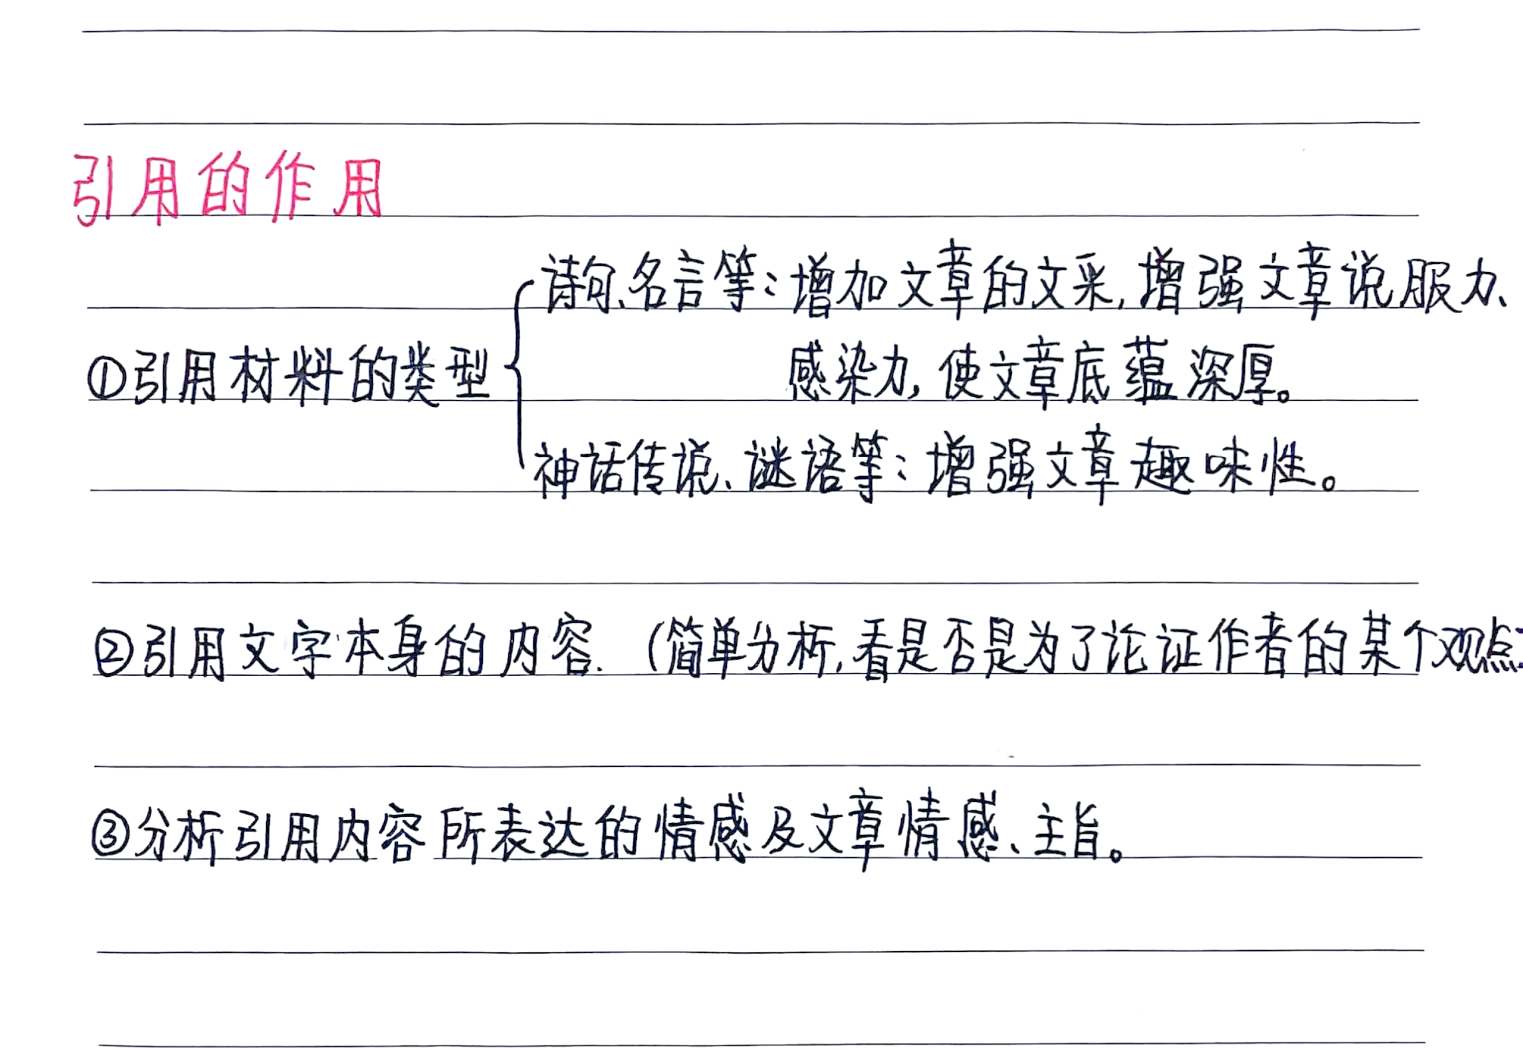 引用的作用
诗句、名言等：增加文章的文采，增强文章说服力、
①引用材料的类型
感染力，使文章底蕴深厚。
神话传说、谜语等：增强文章趣味性。
②引用文字本身的内容.（简单分析，看是否是为了论证作者的某个观点
③分析引用内容所表达的情感及文章情感、主旨。